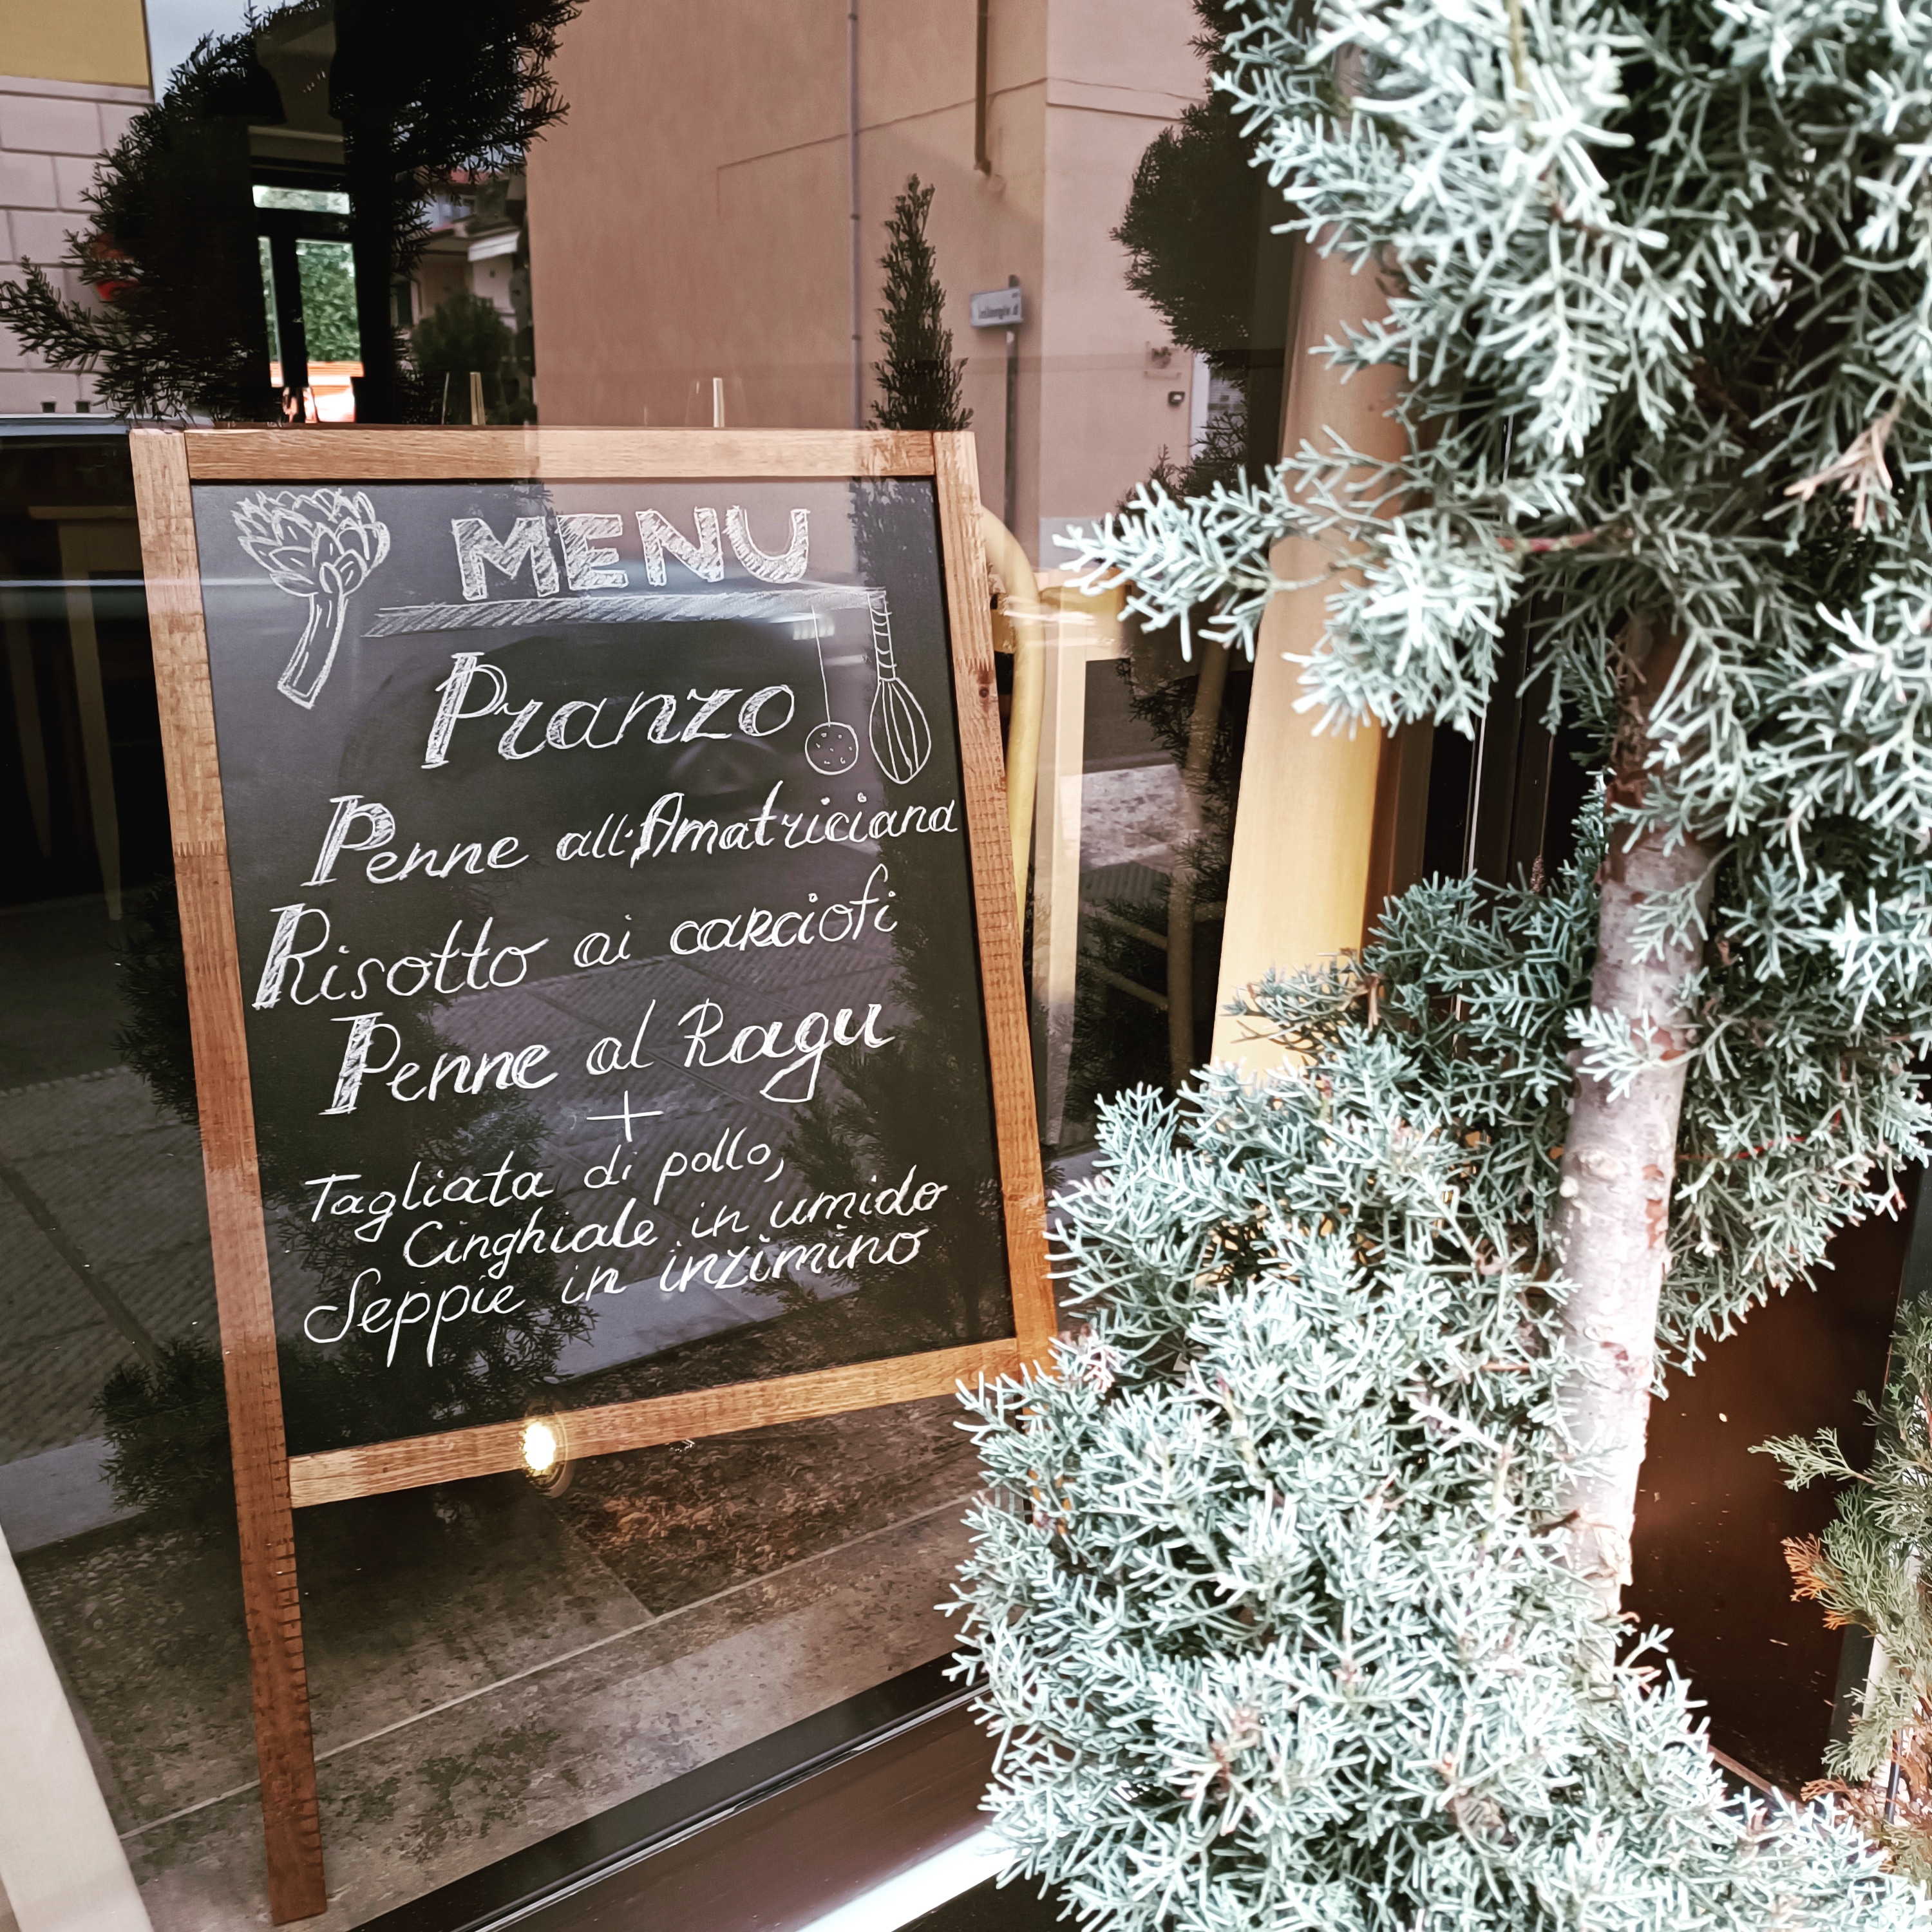 MENU
Pranzo
Penne all'Amatriciana
Risotto ai carciofi
Penne al Ragu
+
Tagliata di pollo,
Cinghiale in umido
Seppie in inzimino